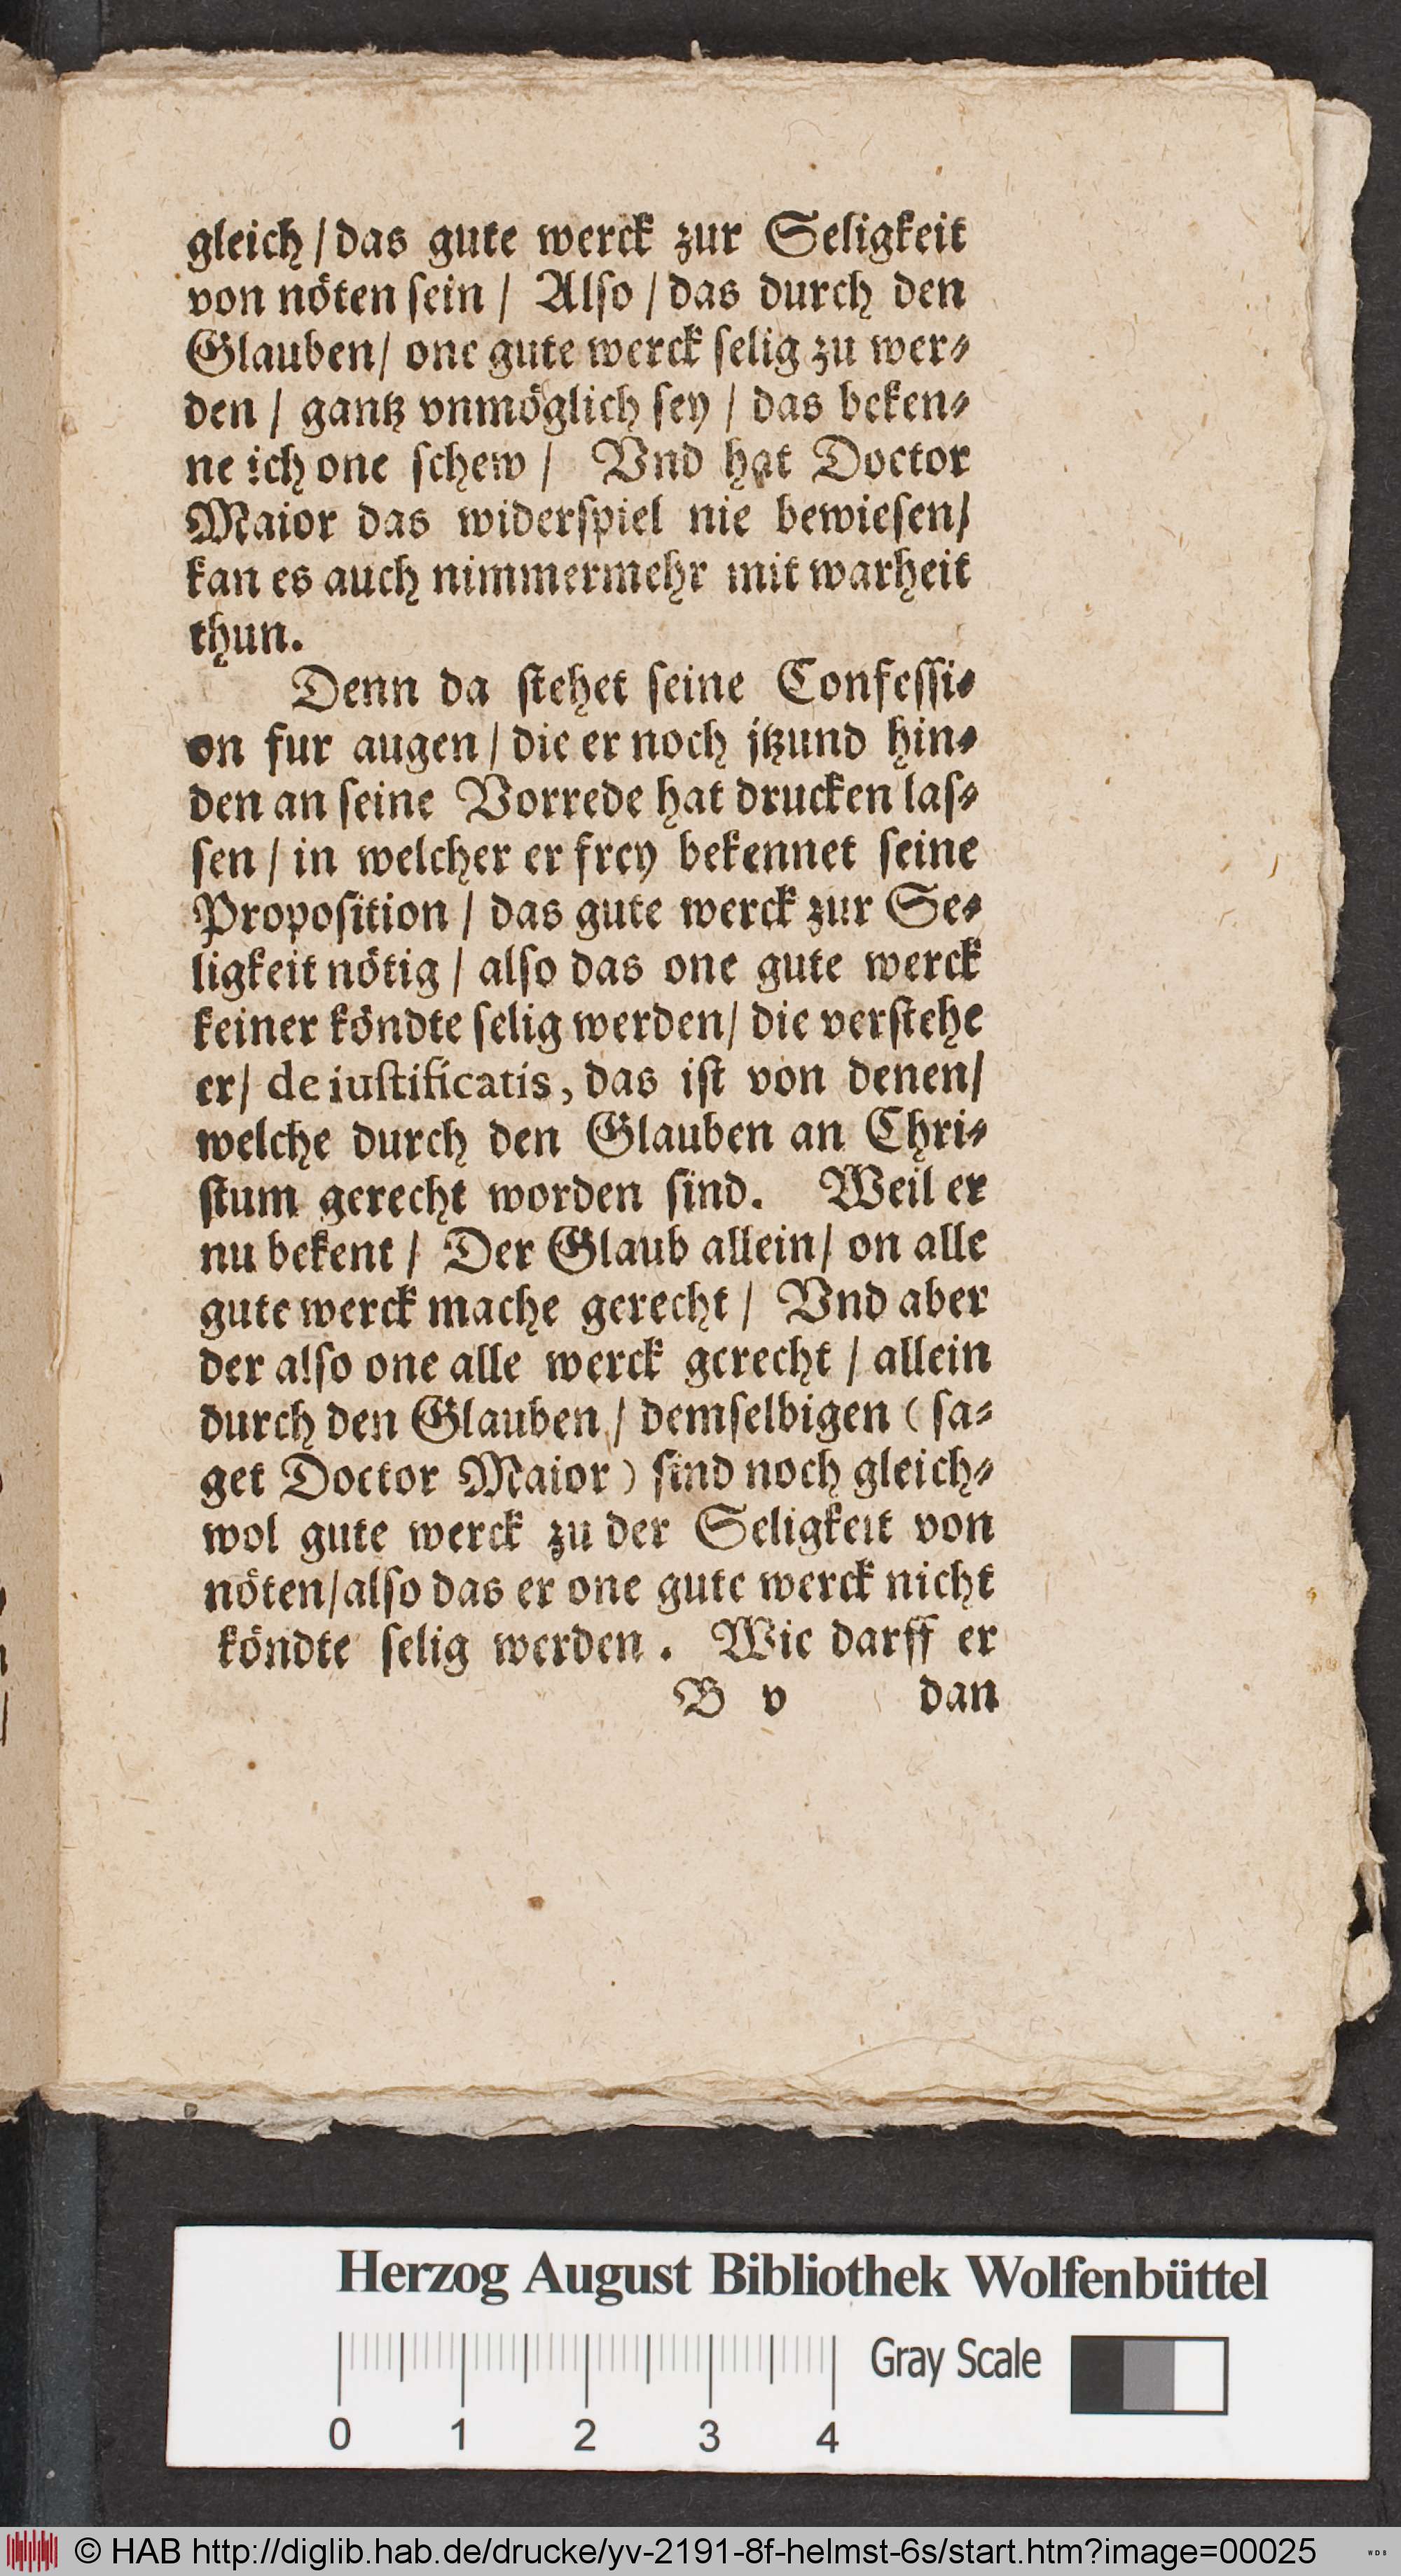 gleich / das gute werck zur Seligkeit
von nöten sein / Also / das durch den
Glauben / one gute werck selig zu wer⸗
den / gantz vnmöglich sey / das beken⸗
ne ich one schew / Vnd hat Doctor
Maior das widerspiel nie bewiesen /
kan es auch nimmermehr mit warheit
thun.
Denn da stehet seine Confessi⸗
on fur augen / die er noch jtzund hin⸗
den an seine Vorrede hat drucken las⸗
sen / in welcher er frey bekennet seine
Proposition / das gute werck zur Se⸗
ligkeit nötig / also das one gute werck
keiner köndte selig werden / die verstehe
er / de iustificatis, das ist von denen /
welche durch den Glauben an Chri⸗
stum gerecht worden sind. Weil er
nu bekent / Der Glaub allein / on alle
gute werck mache gerecht / Vnd aber
der also one alle werck gerecht / allein
durch den Glauben / demselbigen ( sa⸗
get Doctor Maior ) sind noch gleich⸗
wol gute werck zu der Seligkeit von
nöten / also das er one gute werck nicht
köndte selig werden. Wie darff er
B v dan
Herzog August Bibliothek Wolfenbüttel
Gray Scale
0 1 2 3 4
© HAB http://diglib.hab.de/drucke/yv-2191-8f-helmst-6s/start.htm?image=00025
WDB